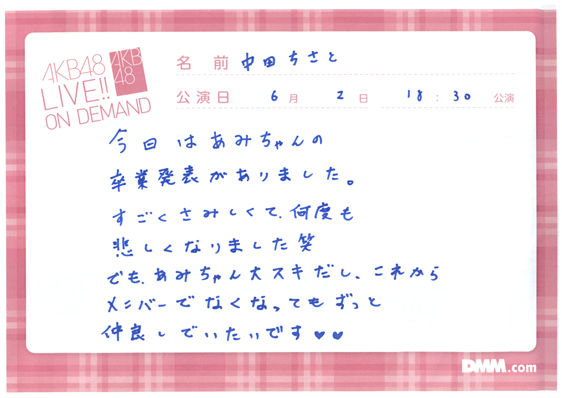 AKB48
LIVE!!
ON DEMAND
AKB
48
名 前 中田ちさと
公演日 6月 2日 18:30 公演
今日はあみちゃんの
卒業発表がありました。
すごくさみしくて、何度も
悲しくなりました笑
でも、あみちゃん大スキだし、これから
メンバーでなくなってもずっと
仲良しでいたいです♥♥
DMM.com